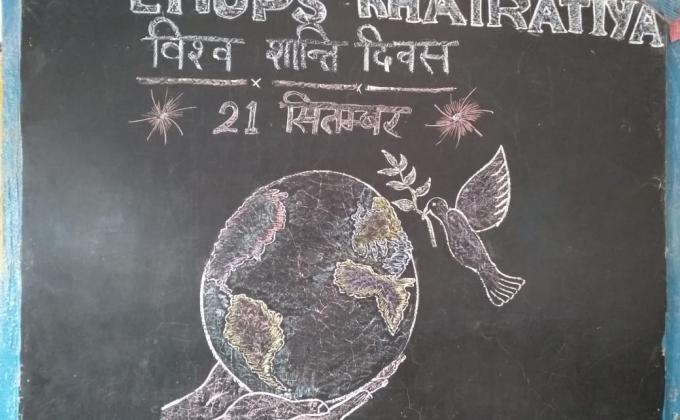 EMUPS KHAIRATIYA
विश्व शान्ति दिवस
21 सितम्बर